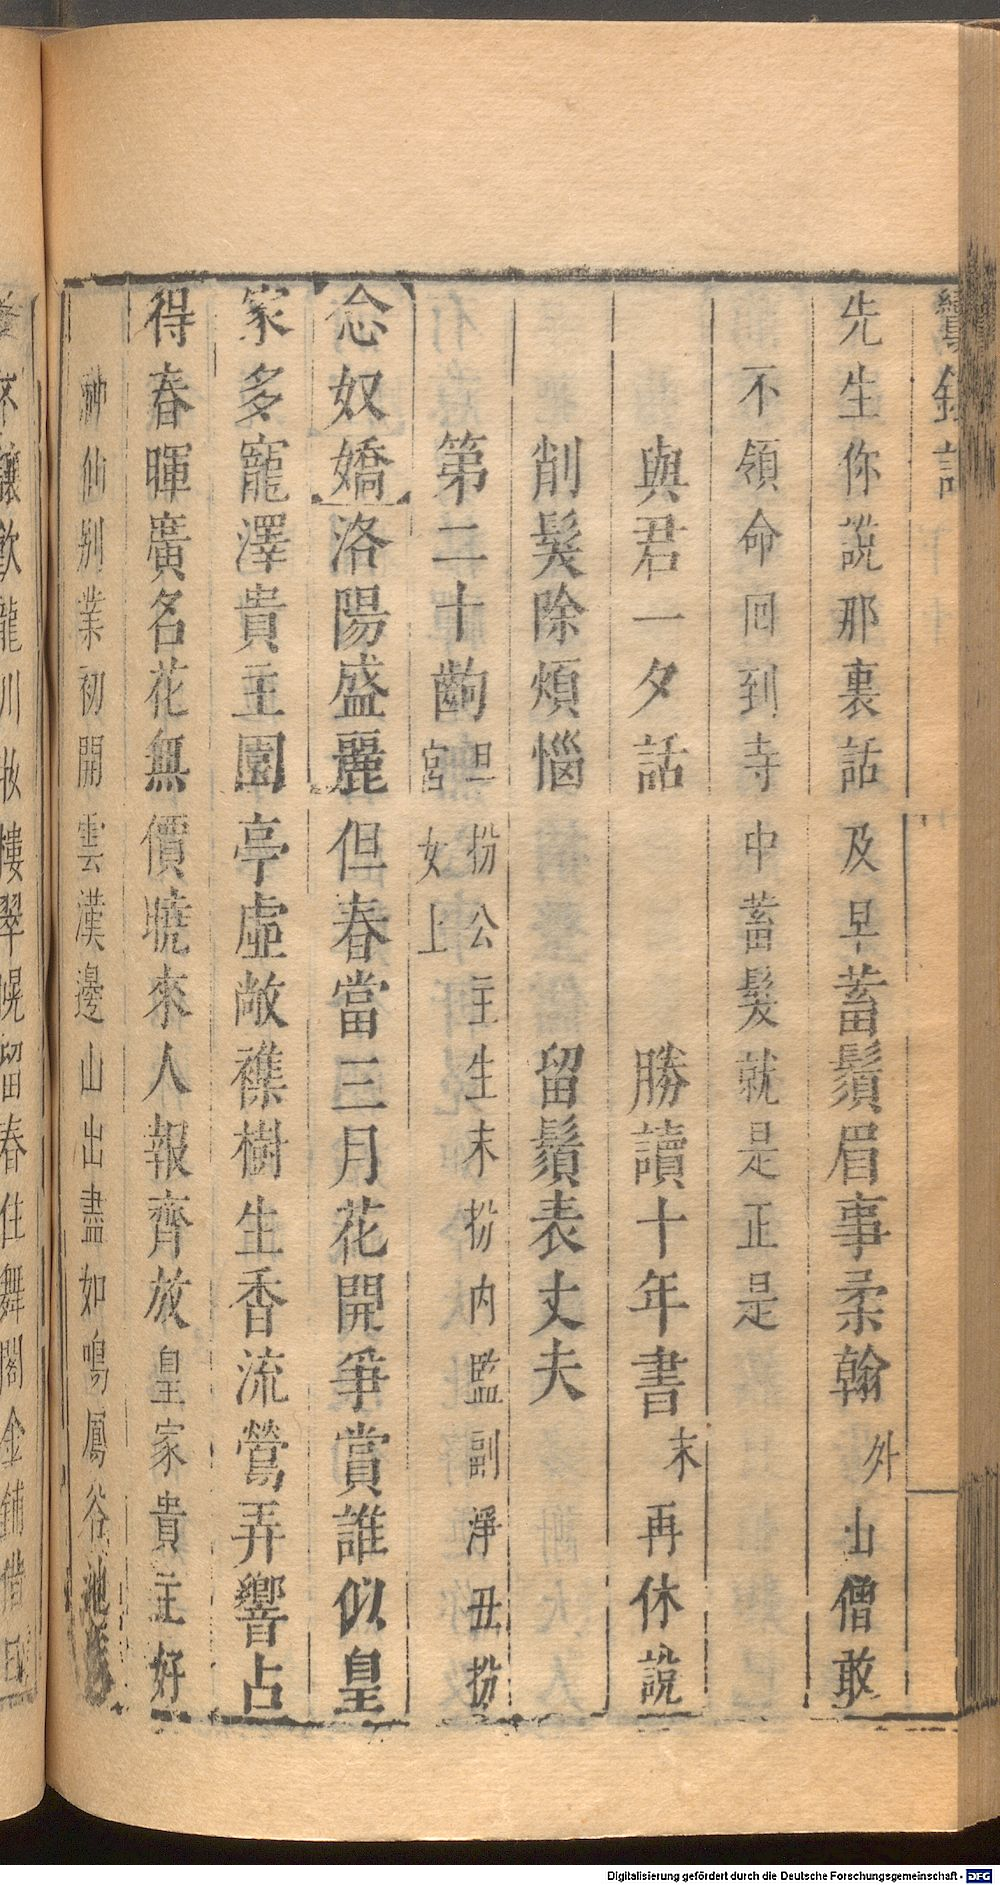 鸞鎞記
先生你說那裏話及早蓄鬚眉事柔翰外山僧敢
不領命回到寺中蓄髮就是正是
與君一夕話　勝讀十年書末再休說
削髮除煩惱　留鬚表丈夫
第二十齣旦扮公主生末扮内監副淨丑扮
宮女上
念奴嬌洛陽盛麗但春當三月花開爭賞誰似皇
家多寵澤貴主園亭虛敞襍樹生香流鶯弄響占
得春暉廣名花無價曉來人報齊放皇家貴主好
神仙别業初開雲漢邊山出盡如鳴鳳谷池
不讓飲龍川妝樓翠幌留春住舞閣金鋪借日
Digitalisierung gefördert durch die Deutsche Forschungsgemeinschaft - DFG